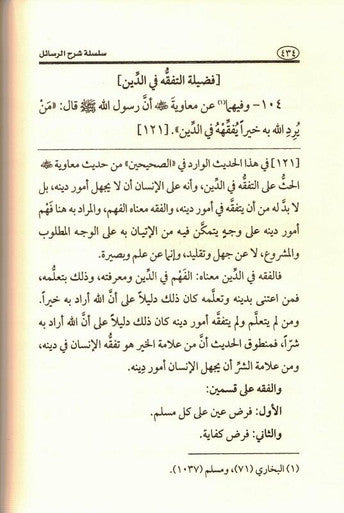 سلسلة شرح الرسائل
٤٣٤
[فضيلة التفقُّه في الدِّين]
١٠٤- وفيهما(١) عن معاويةَ ﵁ أنَّ رسول الله ﷺ قال: «مَنْ
يُرِدِ الله به خيراً يُفقِّهْهُ في الدِّين». [١٢١]
[١٢١] في هذا الحديث الوارد في «الصحيحين» من حديث معاوية ﵁
الحثُّ على التفقُّه في الدِّين، وأنه على الإنسان أن لا يجهل أمور دينه، بل
لا بدَّ له من أن يتفقَّه في أمور دينه، والفقه معناه الفهم، والمراد به هنا فَهْم
أمور دينه على وجهٍ يتمكَّن فيه من الإتيان به على الوجه المطلوب
والمشروع، لا عن جهل وتقليد، وإنما عن علم وبصيرة.
فالفقه في الدِّين معناه: الفَهْم في الدِّين ومعرفته، وذلك بتعلُّمه،
فمن اعتنى بدينه وتعلَّمه كان ذلك دليلاً على أنَّ الله أراد به خيراً.
ومن لم يتعلَّم ولم يتفقَّه أمور دينه كان ذلك دليلاً على أنَّ الله أراد به
شرّاً، فمنطوق الحديث أنَّ من علامة الخير هو تفقُّه الإنسان في دينه،
ومن علامة الشرِّ أن يجهل الإنسان أمور دِينه.
والفقه على قسمين:
الأول: فرض عين على كل مسلم.
والثاني: فرض كفاية.
(١) البخاري (٧١)، ومسلم (١٠٣٧).